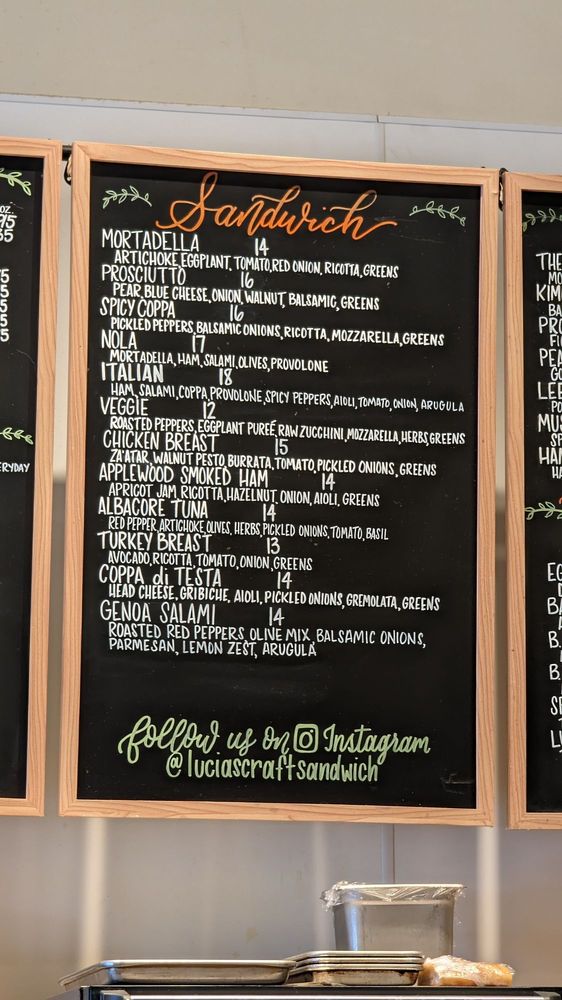 Sandwich
MORTADELLA 14
ARTICHOKE, EGGPLANT, TOMATO, RED ONION, RICOTTA, GREENS
PROSCIUTTO 16
PEAR, BLUE CHEESE, ONION, WALNUT, BALSAMIC, GREENS
SPICY COPPA 16
PICKLED PEPPERS, BALSAMIC ONIONS, RICOTTA, MOZZARELLA, GREENS
NOLA 17
MORTADELLA, HAM, SALAMI, OLIVES, PROVOLONE
ITALIAN 18
HAM, SALAMI, COPPA, PROVOLONE, SPICY PEPPERS, AIOLI, TOMATO, ONION, ARUGULA
VEGGIE 12
ROASTED PEPPERS, EGGPLANT PUREÉ, RAW ZUCCHINI, MOZZARELLA, HERBS, GREENS
CHICKEN BREAST 15
ZA'ATAR, WALNUT PESTO, BURRATA, TOMATO, PICKLED ONIONS, GREENS
APPLEWOOD SMOKED HAM 14
APRICOT JAM RICOTTA, HAZELNUT, ONION, AIOLI, GREENS
ALBACORE TUNA 14
RED PEPPER, ARTICHOKE, OLIVES, HERBS, PICKLED ONIONS, TOMATO, BASIL
TURKEY BREAST 13
AVOCADO, RICOTTA, TOMATO, ONION, GREENS
COPPA di TESTA 14
HEAD CHEESE, GRIBICHE, AIOLI, PICKLED ONIONS, GREMOLATA, GREENS
GENOA SALAMI 14
ROASTED RED PEPPERS, OLIVE MIX, BALSAMIC ONIONS,
PARMESAN, LEMON ZEST, ARUGULA
follow us on Instagram
@luciascraftsandwich